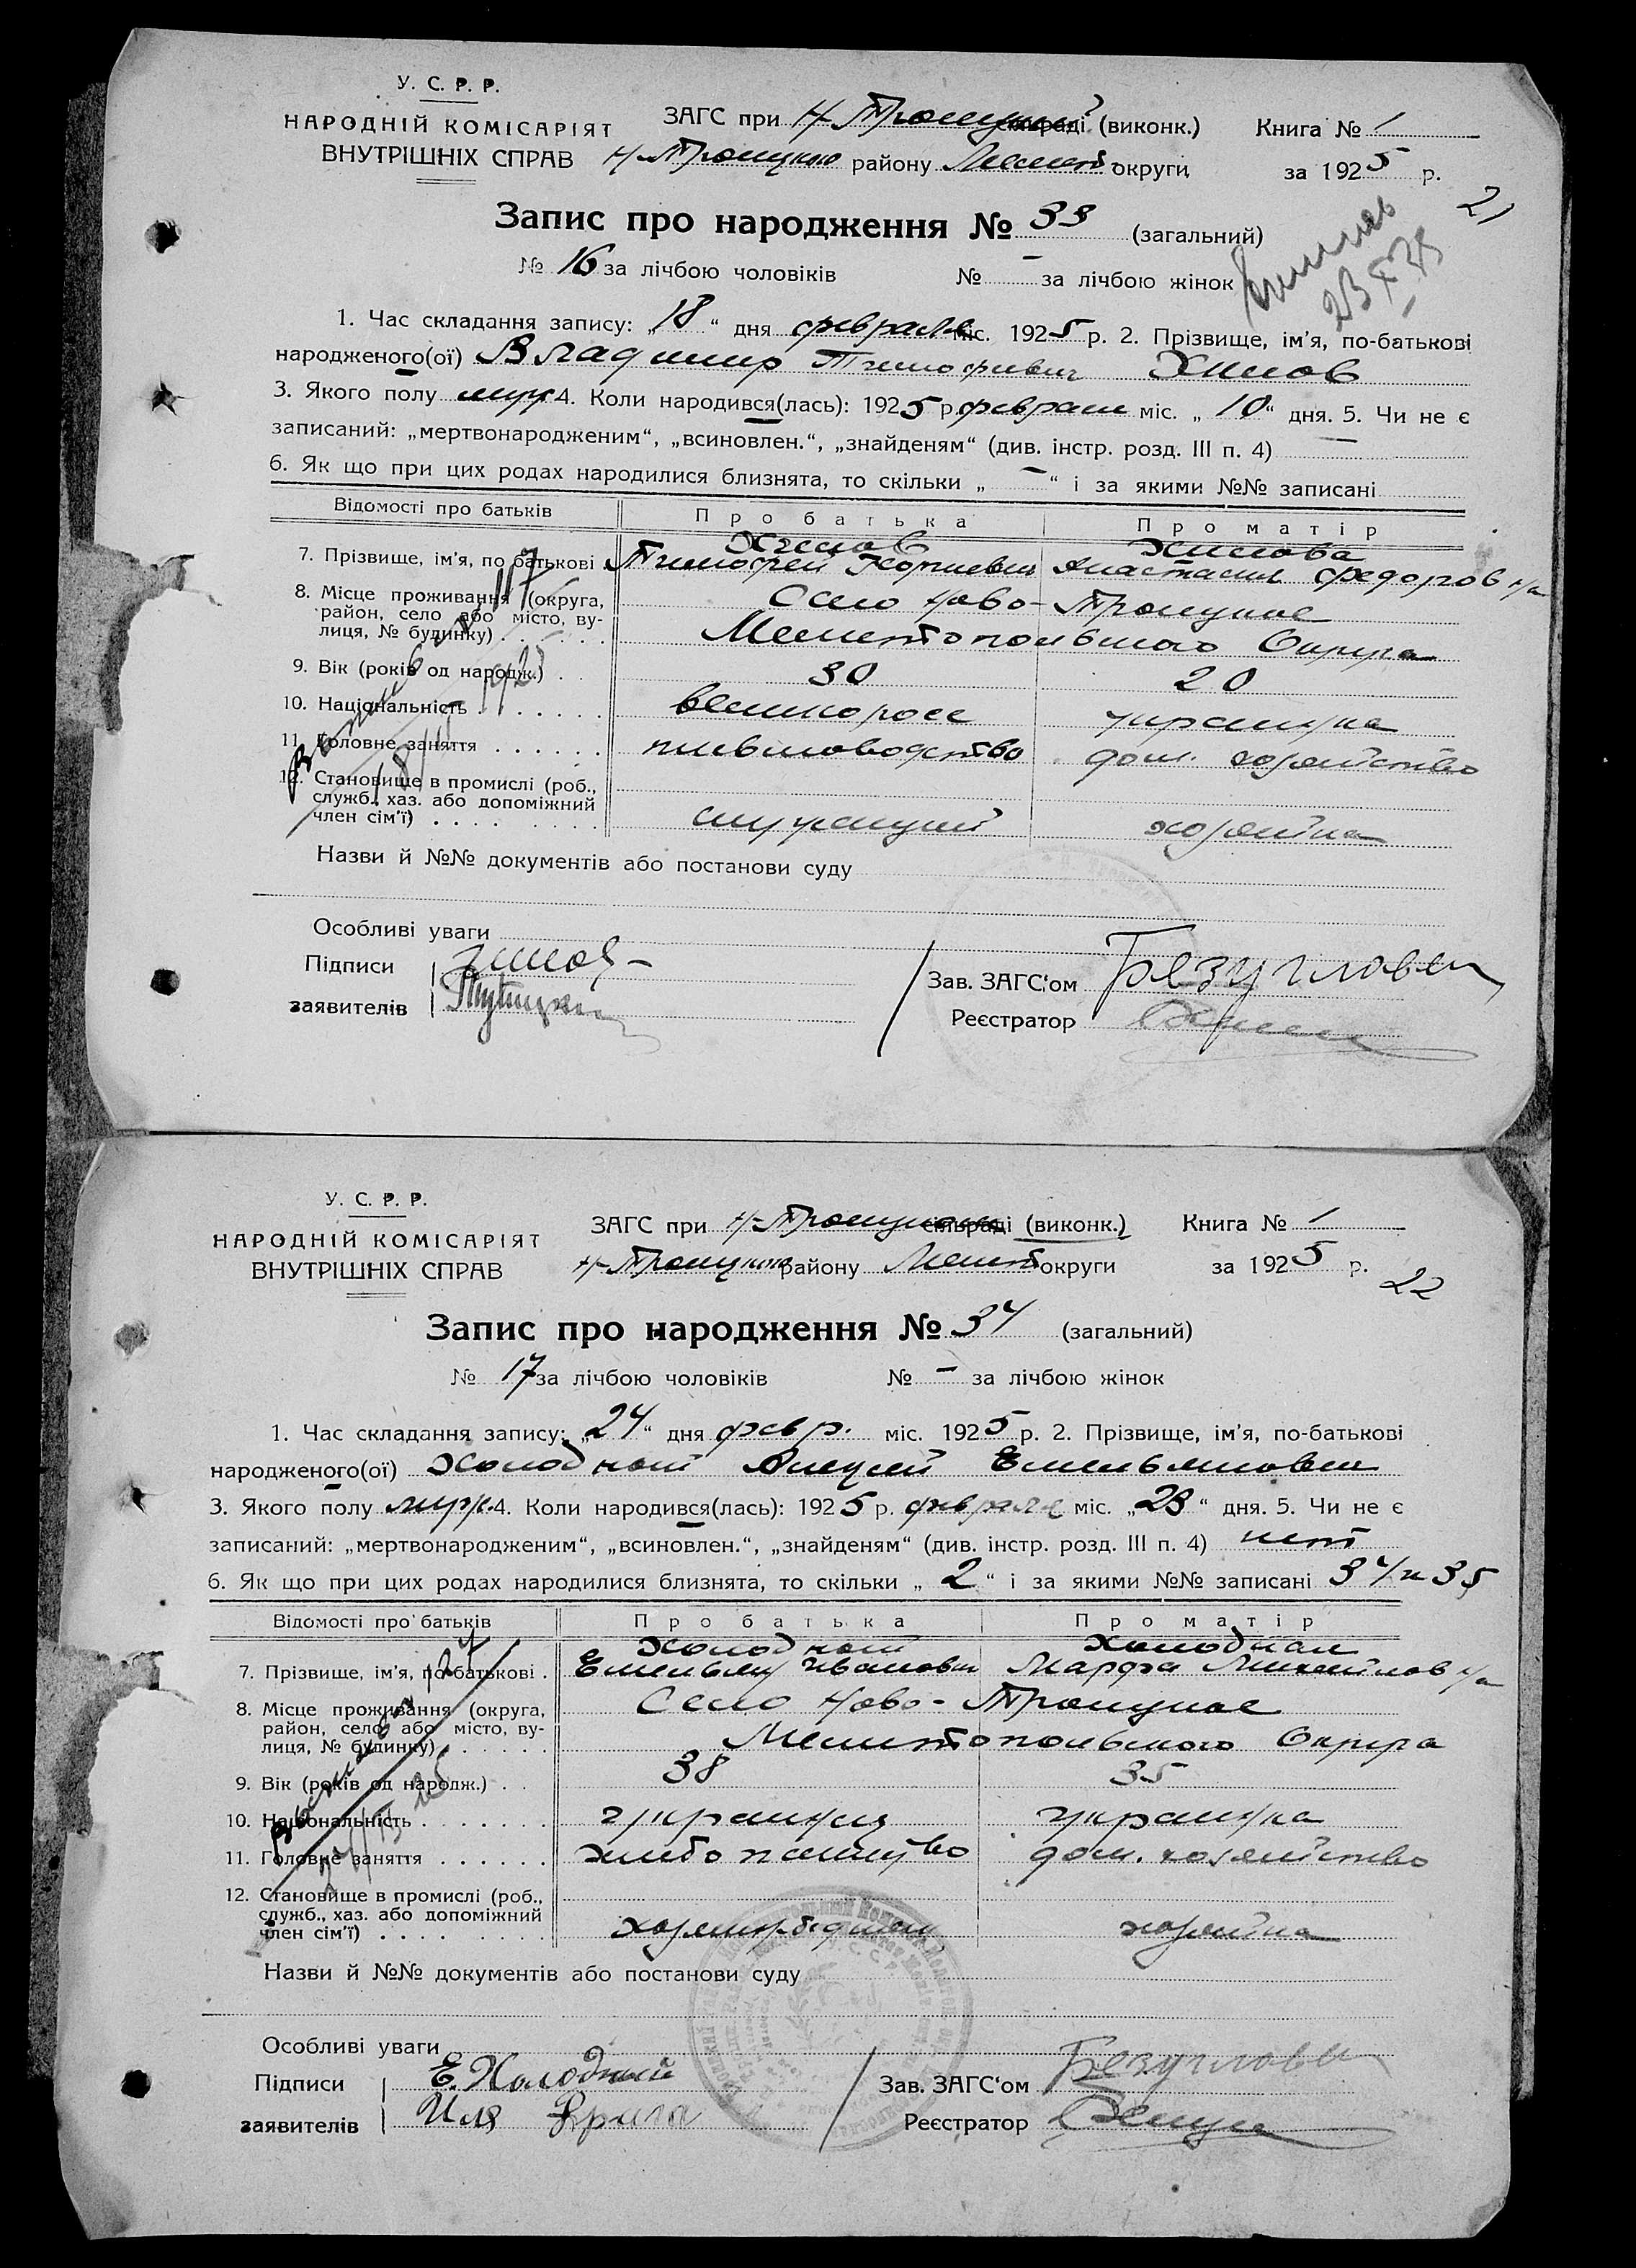 У. С. Р. Р.
НАРОДНІЙ КОМІСАРІЯТ
ВНУТРІШНІХ СПРАВ
ЗАГС при Н-Троицкой сільраді (виконк.)
Н-Троицкого району Мелит. округи
Книга № 1
за 1925 р.
21
Запис про народження № 33 (загальний)
№ 16 за лічбою чоловіків № – за лічбою жінок
1. Час складання запису: „18“ дня февраля міс. 1925 р. 2. Прізвище, ім’я, по-батькові
народженого(ої) Владимир Тимофиевич Хилов
3. Якого полу муж 4. Коли народився(лась): 1925 р. февраля міс. „10“ дня. 5. Чи не є
записаний: „мертвонародженим“, „всиновлен.“, „знайденям“ (див. інстр. розд. III п. 4) —
6. Як що при цих родах народилися близнята, то скільки „ – “ і за якими №№ записані
Відомості про батьків Про батька Про матір
Хилов Хилова
7. Прізвище, ім’я, по батькові Тимофей Анастасия Федоровна
8. Місце проживання (округа, район, село або місто, вулиця, № будинку) Село Ново-Троицкое
Мелитопольского Округа
9. Вік (років од народж.) 30 20
10. Національність великоросс украинка
11. Головне заняття дом. хозяйство
12. Становище в промислі (роб., служб., хаз. або допоміжний член сім’ї) служащий хозяйка
Назви й №№ документів або постанови суду
Особливі уваги
Підписи
заявителів
Зав. ЗАГС‘ом
Реєстратор
У. С. Р. Р.
НАРОДНІЙ КОМІСАРІЯТ
ВНУТРІШНІХ СПРАВ
ЗАГС при Н-Троицком сільраді (виконк.)
Н-Троицкого району Мелит округи
Книга № 1
за 1925 р.
22
Запис про народження № 34 (загальний)
№ 17 за лічбою чоловіків № – за лічбою жінок
1. Час складання запису: „24“ дня февр. міс. 1925 р. 2. Прізвище, ім’я, по-батькові
народженого(ої) Холодный Алексей Емельянович
3. Якого полу муж. 4. Коли народився(лась): 1925 р. февраля міс. „23“ дня. 5. Чи не є
записаний: „мертвонародженим“, „всиновлен.“, „знайденям“ (див. інстр. розд. III п. 4) нет
6. Як що при цих родах народилися близнята, то скільки „2“ і за якими №№ записані 34 и 35
Відомості про батьків Про батька Про матір
Холодный Холодная
7. Прізвище, ім’я, по батькові Емельян Иванович Марфа Михайловна
8. Місце проживання (округа, район, село або місто, вулиця, № будинку) Село Ново-Троицкое
Мелитопольского Округа
9. Вік (років од народж.) 38 35
10. Національність украинец украинка
11. Головне заняття хлебопашество дом. хозяйство
12. Становище в промислі (роб., служб., хаз. або допоміжний член сім’ї) хозяйка
Назви й №№ документів або постанови суду
Особливі уваги
Підписи Е. Холодный
заявителів
Зав. ЗАГС‘ом
Реєстратор